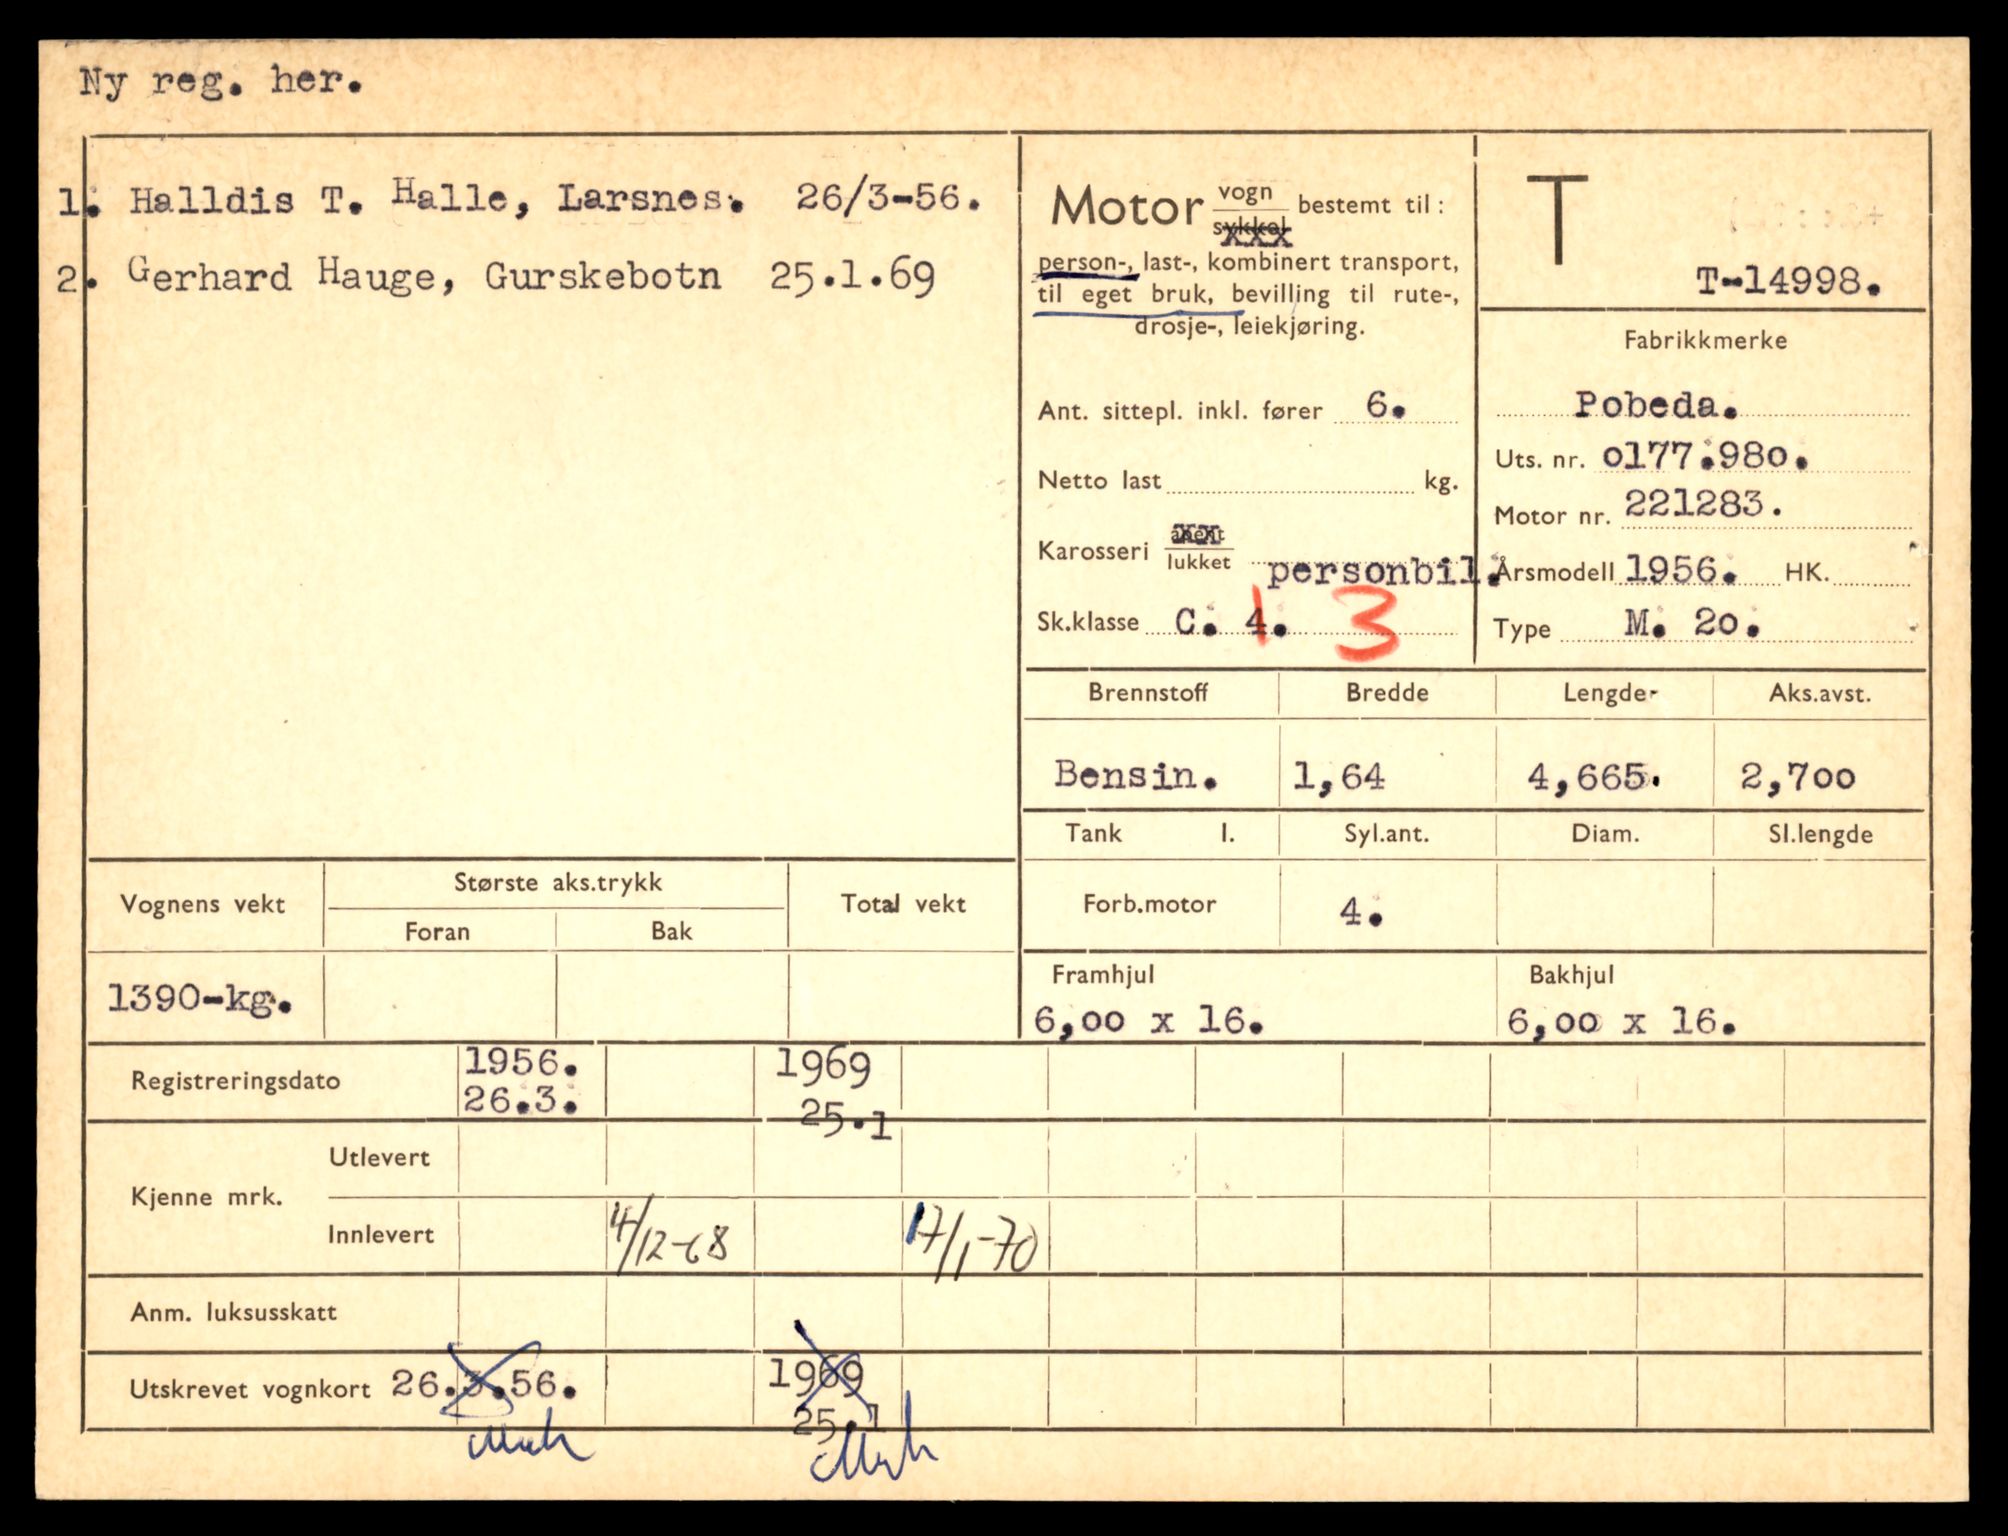 Ny reg. her.
1. Halldis T. Halle, Larsnes. 26/3-56.
2. Gerhard Hauge, Gurskebotn 25.1.69
Motor vogn bestemt til:
sykkel
xxx
person-, last-, kombinert transport,
til eget bruk, bevilling til rute-,
drosje-, leiekjøring.
Ant. sittepl. inkl. fører 6.
Netto last kg.
Karosseri åpent
lukket personbil.
Sk.klasse C. 4. 1 3
T
T-14998.
Fabrikkmerke
Pobeda.
Uts. nr. o177.98o.
Motor nr. 221283.
Årsmodell 1956. HK.
Type M. 2o.
Brennstoff Bredde Lengde Aks.avst.
Bensin. 1,64 4,665. 2,7oo
Tank l. Syl.ant. Diam. Sl.lengde
Forb.motor 4.
Framhjul Bakhjul
6,oo x 16. 6,oo x 16.
Vognens vekt Største aks.trykk Total vekt
Foran Bak
1390-kg.
Registreringsdato 1956. 1969
26.3. 25.1
Kjenne mrk. Utlevert
Innlevert 4/12-68 17/1-70
Anm. luksusskatt
Utskrevet vognkort 26.3.56. 1969
25.1